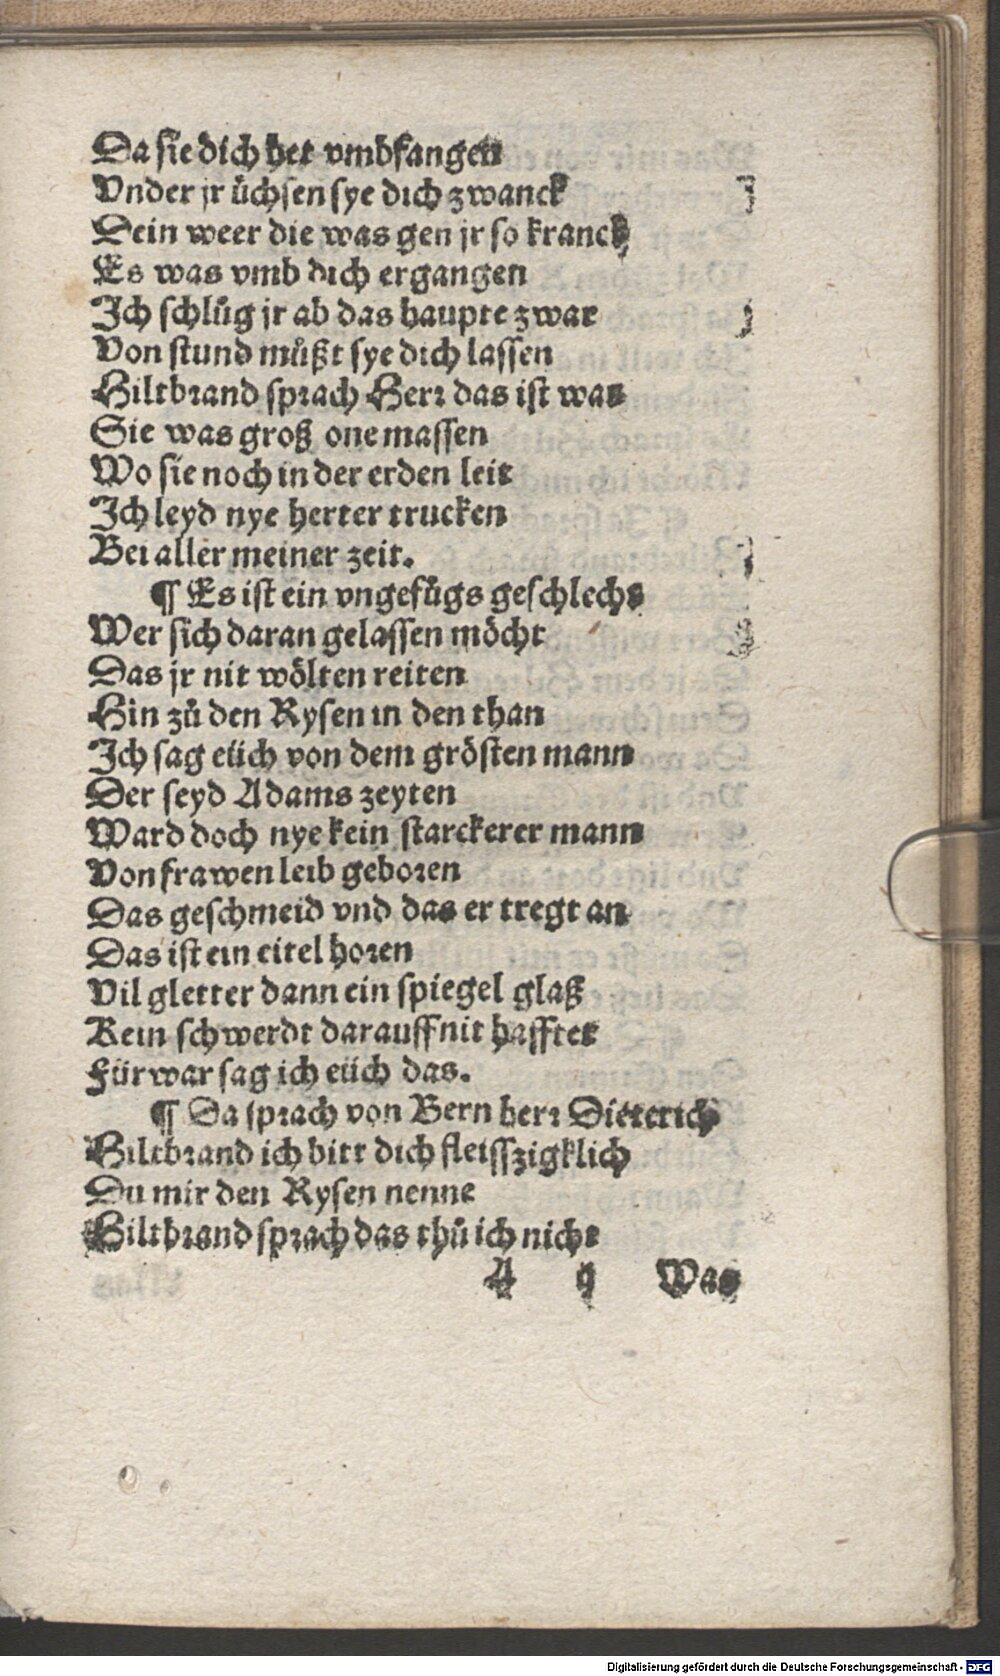 Da sie dich het vmbfangen
Vnder jr üchsen sye dich zwanck
Dein weer die was gen jr so kranck
Es was vmb dich ergangen
Ich schlůg jr ab das haupte zwar
Von stund můßt sye dich lassen
Hiltbrand sprach Herr das ist war
Sie was groß one massen
Wo sie noch in der erden leit
Ich leyd nye herter trucken
Bei aller meiner zeit.
¶ Es ist ein vngefůgs geschlecht
Wer sich daran gelassen möcht
Das jr nit wölten reiten
Hin zů den Rysen in den than
Ich sag eüch von dem grösten mann
Der seyd Adams zeyten
Ward doch nye kein starckerer mann
Von frawen leib geboren
Das geschmeid vnd das er tregt an
Das ist ein eitel horen
Vil gletter dann ein spiegel glaß
Kein schwerdt darauff nit hafftet
Fürwar sag ich eüch das.
¶ Da sprach von Bern herr Dieterich
Hiltbrand ich bitt dich fleisszigklich
Du mir den Rysen nenne
Hiltbrand sprach das thů ich nicht
A ij Was
Digitalisierung gefördert durch die Deutsche Forschungsgemeinschaft - DFG